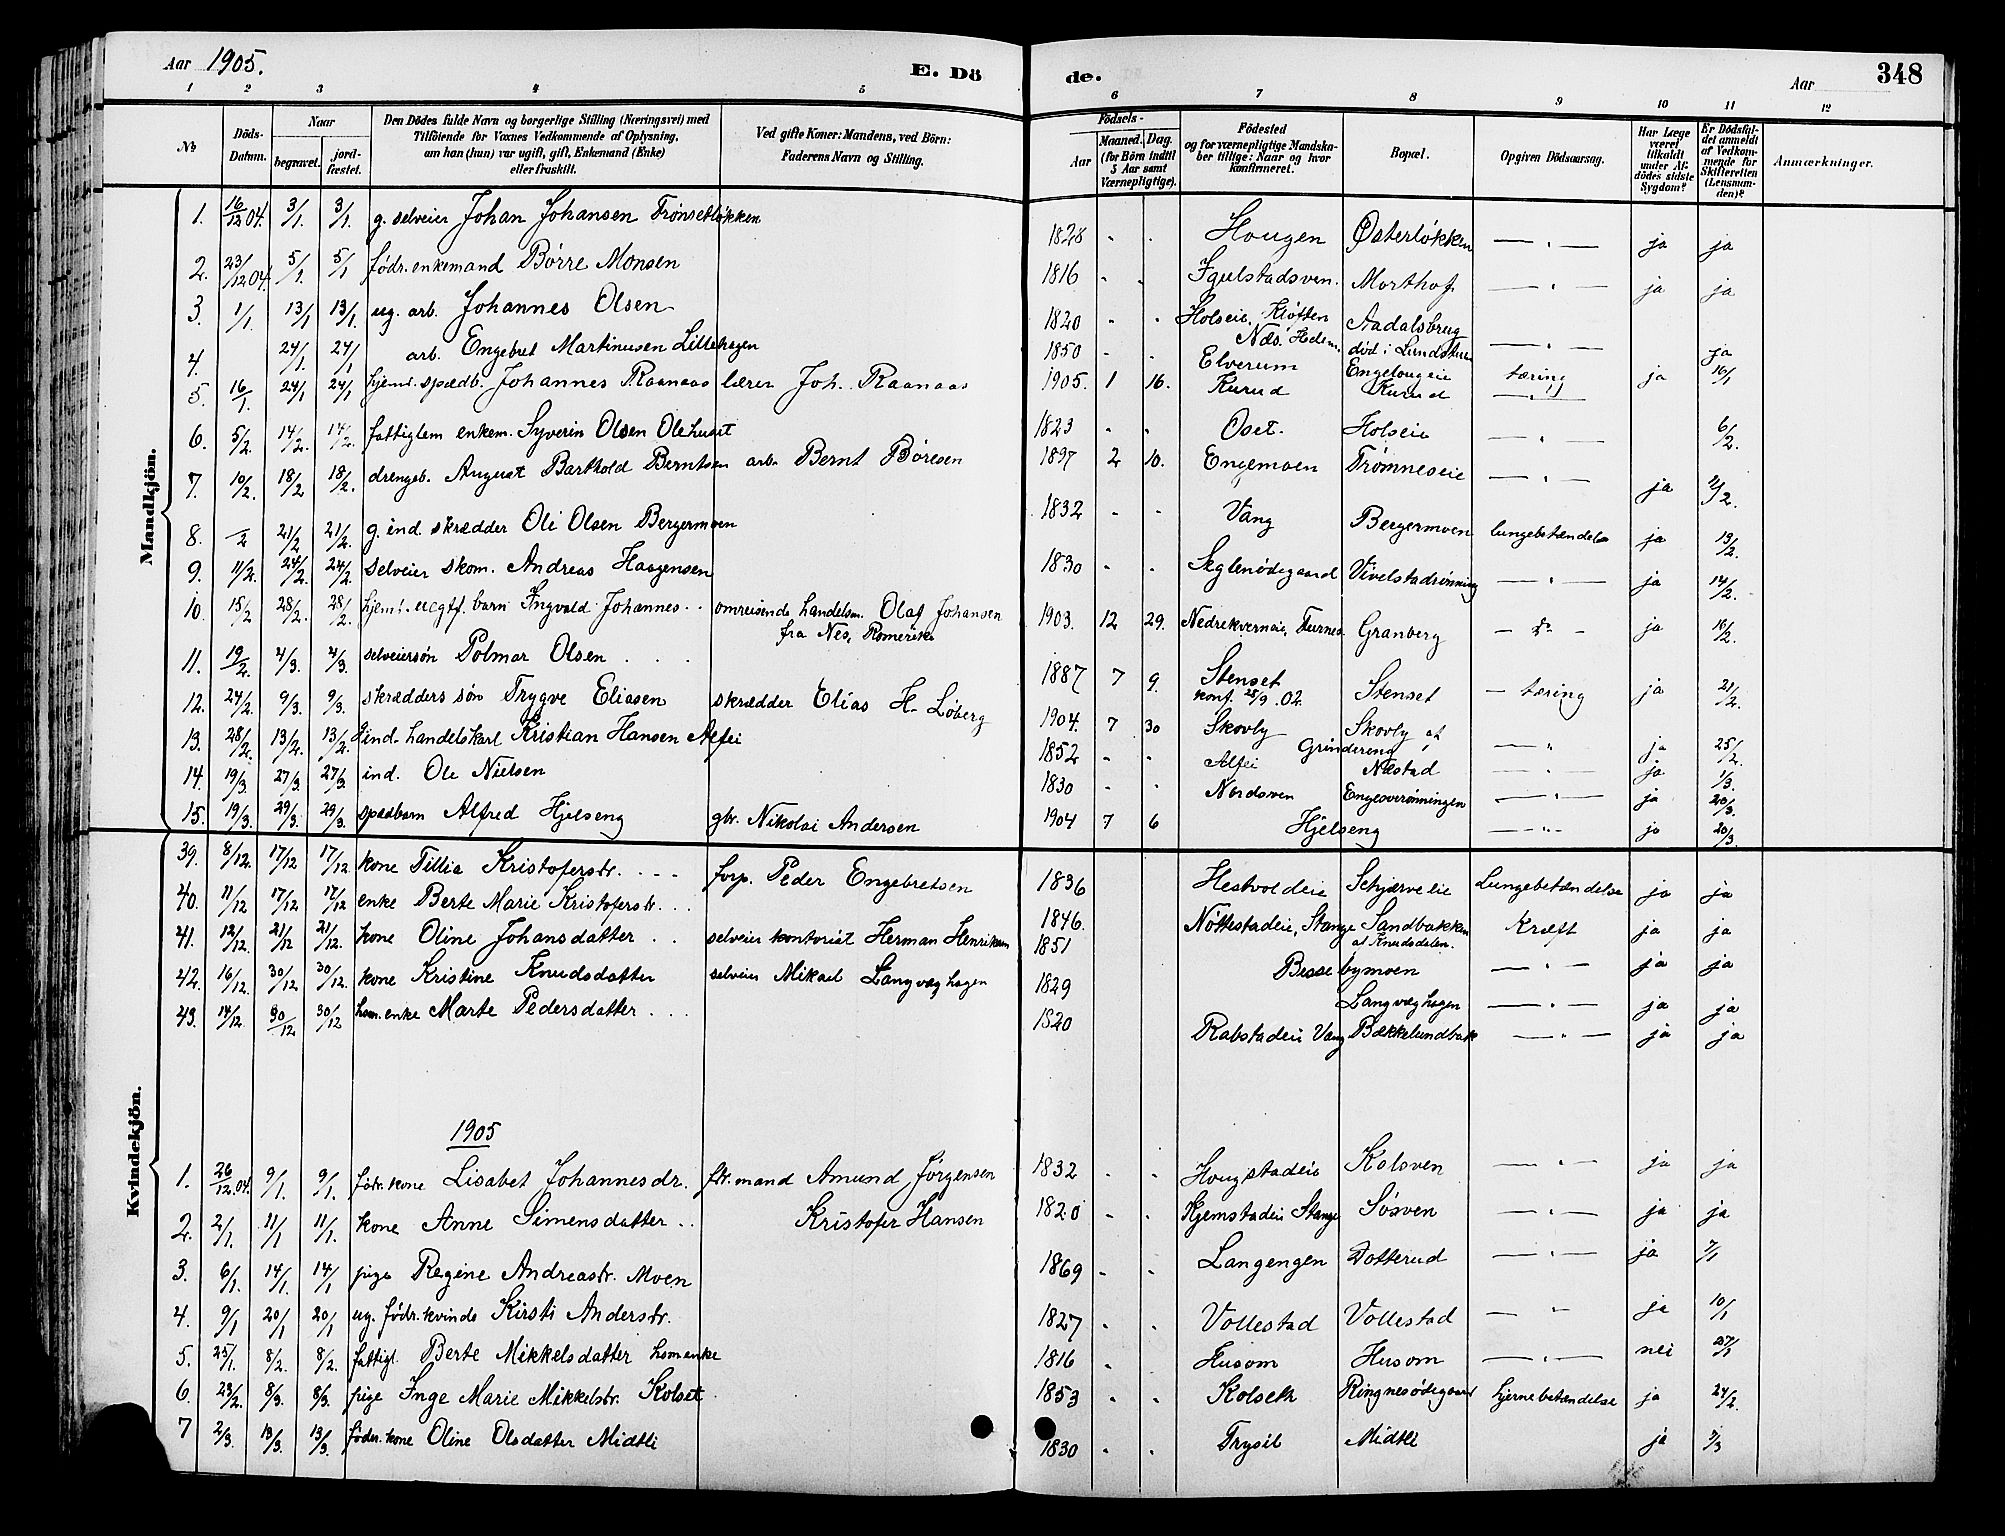 Aar 1905. E. Dö de. Aar 348
1 2 3 4 5 6 7 8 9 10 11 12
No
Döds-Datum.
Naar
begravet.
jord-fæstet.
Den Dödes fulde Navn og borgerlige Stilling (Næringsvei) med
Tilföiende for Voxnes Vedkommende af Oplysning,
om han (hun) var ugift, gift, Enkemand (Enke)
eller fraskilt.
Ved gifte Koner: Mandens, ved Börn:
Faderens Navn og Stilling.
Födsels-
Aar
Maaned. Dag.
(for Börn indtil
5 Aar samt
Værnepligtige).
Födested
og for værnepligtige Mandska-
ber tillige: Naar og hvor
konfirmeret.
Bopæl.
Opgiven Dödsaarsag.
Har Læge
været
tilkaldt
under Af-
dödes sidste
Sygdom?
Er Dödsfal-
det anmeldt
af Vedkom-
mende for
Skifteretten
(Lensman-
den)?
Anmærkninger.
Mandkjön.
1. 16/12 04. 3/1 3/1 g. selveier Johan Johansen Trönsetløkken 1828 " " Hougen Østerløkken — " — ja ja
2. 23/12 04. 5/1 5/1 födr. enkemand Börre Monsen 1816 " " Igelstadsven. Morthof — " — ja ja
3. 1/1. 13/1 13/1. ug. arb. Johannes Olsen 1820 " " Holseie, Kløtten Aadalsbrug — " —
4. 24/1. 24/1 arb. Engebret Martinusen Littehagen 1850 " " Næs. Hedem. Elverum død i Engelaugeie tæring ja ja
5. 16/1. 24/1 24/1 hjemd. spædb. Johannes Raanaas lærer Joh. Raanaas 1905. 1 16. Kurud Kurud — " — 16/1
6. 5/2. 14/2. 14/2. fattiglem enkem. Syverin Olsen Olehuset 1823 " " Oset. Holseie — " — 6/2.
7. 10/2. 18/2 18/2. drengeb. August Barthold Berntsen arb. Bernt Böresen 1897 2 10. Engemoen Trømneseie — " — ja
8. 21/2 21/2. g. ind. skrædder Ole Olsen Bergermoen 1832 " " Vang Bergermoen lungebetændelse ja 13/2.
9. 11/2. 24/2. 24/2. selveier skom. Andreas Haagensen 1830 " " Seglenødegaard Vivelstadrönning — " — ja 14/2.
10. 15/2 28/2. 28/2. hjemd. uegtf. barn Ingvald Johannes omreisende handelsm. Olaf Johansen
fra Nes, Romerike 1903. 12 29. Nedrekverneie, Furnes Granberg — " — ja 16/2.
11. 19/2. 4/3. 4/3. selveiersön Polmar Olsen 1887 7 9. Stenset
konf. 28/9 .02. Stenset — tæring ja 21/2.
12. 24/2. 9/3. 9/3. skrædders sön Trygve Eliasen skrædder Elias H. Løberg 1904. 7 30 Skovby Skovby af
Grindereng — " ja 25/2.
13. 28/2. 13/2. 13/2. ind. handelskarl Kristian Hansen Alfei 1852 " " Alfei Næstad — " — ja 1/3.
14. 19/3 27/3. 27/3 ind. Ole Nielsen 1830 " " Nordsven Engesverønningen — " — ja 20/3.
15. 19/3. 29/3. 29/3. spædbarn Alfred Hjelseng gbr. Nikolai Andersen 1904 7 6 Hjelseng — " — ja 20/3.
Kvindekjön.
39. 8/12. 17/12 17/12. kone Tillia Kristofersdr. forp. Peder Engebretsen 1836 Hestvoldeie Schjærveie Lungebetændelse ja ja
40. 11/12 17/12 17/12 enke Berte Marie Kristofersdr. 1846. Nöttestadeie, Stange Sandbakken
af Knudsdalen. Kræft ja ja
41. 12/12. 21/12 21/12. kone Oline Johansdatter selveier kontorist Herman Henriksen 1851 Bessebymoen — " — ja ja
42. 16/12. 30/12 30/12. kone Kristine Knudsdatter selveier Mikael Langvæghagen 1829 Langvæghagen — " — ja ja
43. 14/12 30/12 30/12 hsm. enke Marte Pedersdatter 1820 Rabstadeie Vang Bækkelundbak — " — ja ja
1905
1. 26/12.04. 9/1. 9/1. födr. kone Lisabet Johannesdr. fdr. mand Amund Jörgensen 1832 " " Hougstadeie Kolsven — " — ja ja
2. 2/1. 11/1 11/1. kone Anne Simensdatter Kristofer Hansen 1820 " " Kjemstadeie Stange Søsven — " — ja ja
3. 6/1. 14/1. 14/1 pige Regine Andreasdr. Moen 1869 " " Langengen Dotterud — " — ja 7/1
4. 9/1 20/1 20/1 ug. födr. kvinde Kirsti Andersdr. 1827 " " Vollestad Vollestad — " ja 10/1
5. 25/1. 8/2. 8/2. fattigl. Berte Mikkelsdatter hsm enke 1816 " Husom Husom — " — nei 27/1
6. 23/2. 8/3. 8/3. pige Inge Marie Mikkelsdr. Kolset 1853 " " Kolseth Ringnesødegaard hjernebetændelse ja 24/2.
7 2/3. 13/3. 13/3. föder. kone Oline Olsdatter Midtli 1830 " " Trysil Midtli ja 3/3